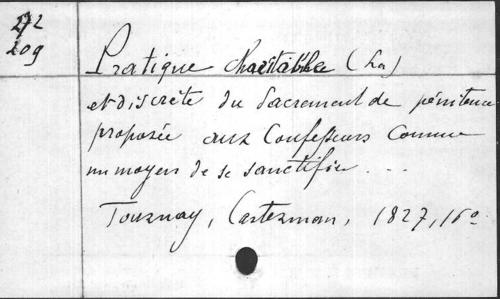 272
209
Pratique charitable (La)
et discrète du Sacrement de pénitence
proposée aux Confesseurs Comme
un moyen de se sanctifier ...
Tournay, Casterman, 1827, 16o